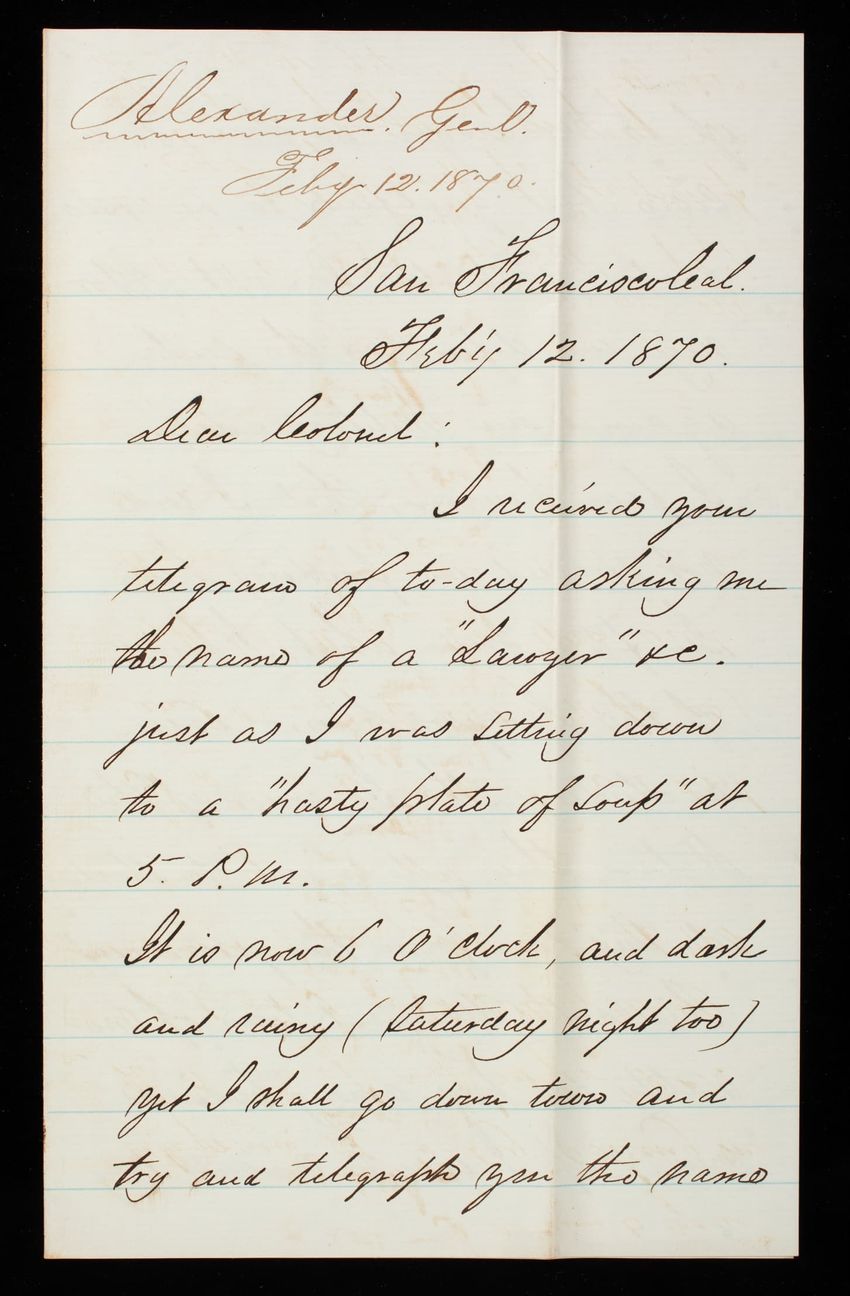 Alexander. Genl.
Feby 12. 1870.
San Francisco Cal.
Feb'y 12. 1870.
Dear Colonel:
I received your
telegram of to-day asking me
the name of a "Lawyer" &c.
just as I was setting down
to a "hasty plate of soup" at
5. P.M.
It is now 6 O'clock, and dark
and rainy (Saturday night too)
yet I shall go down town and
try and telegraph you the name